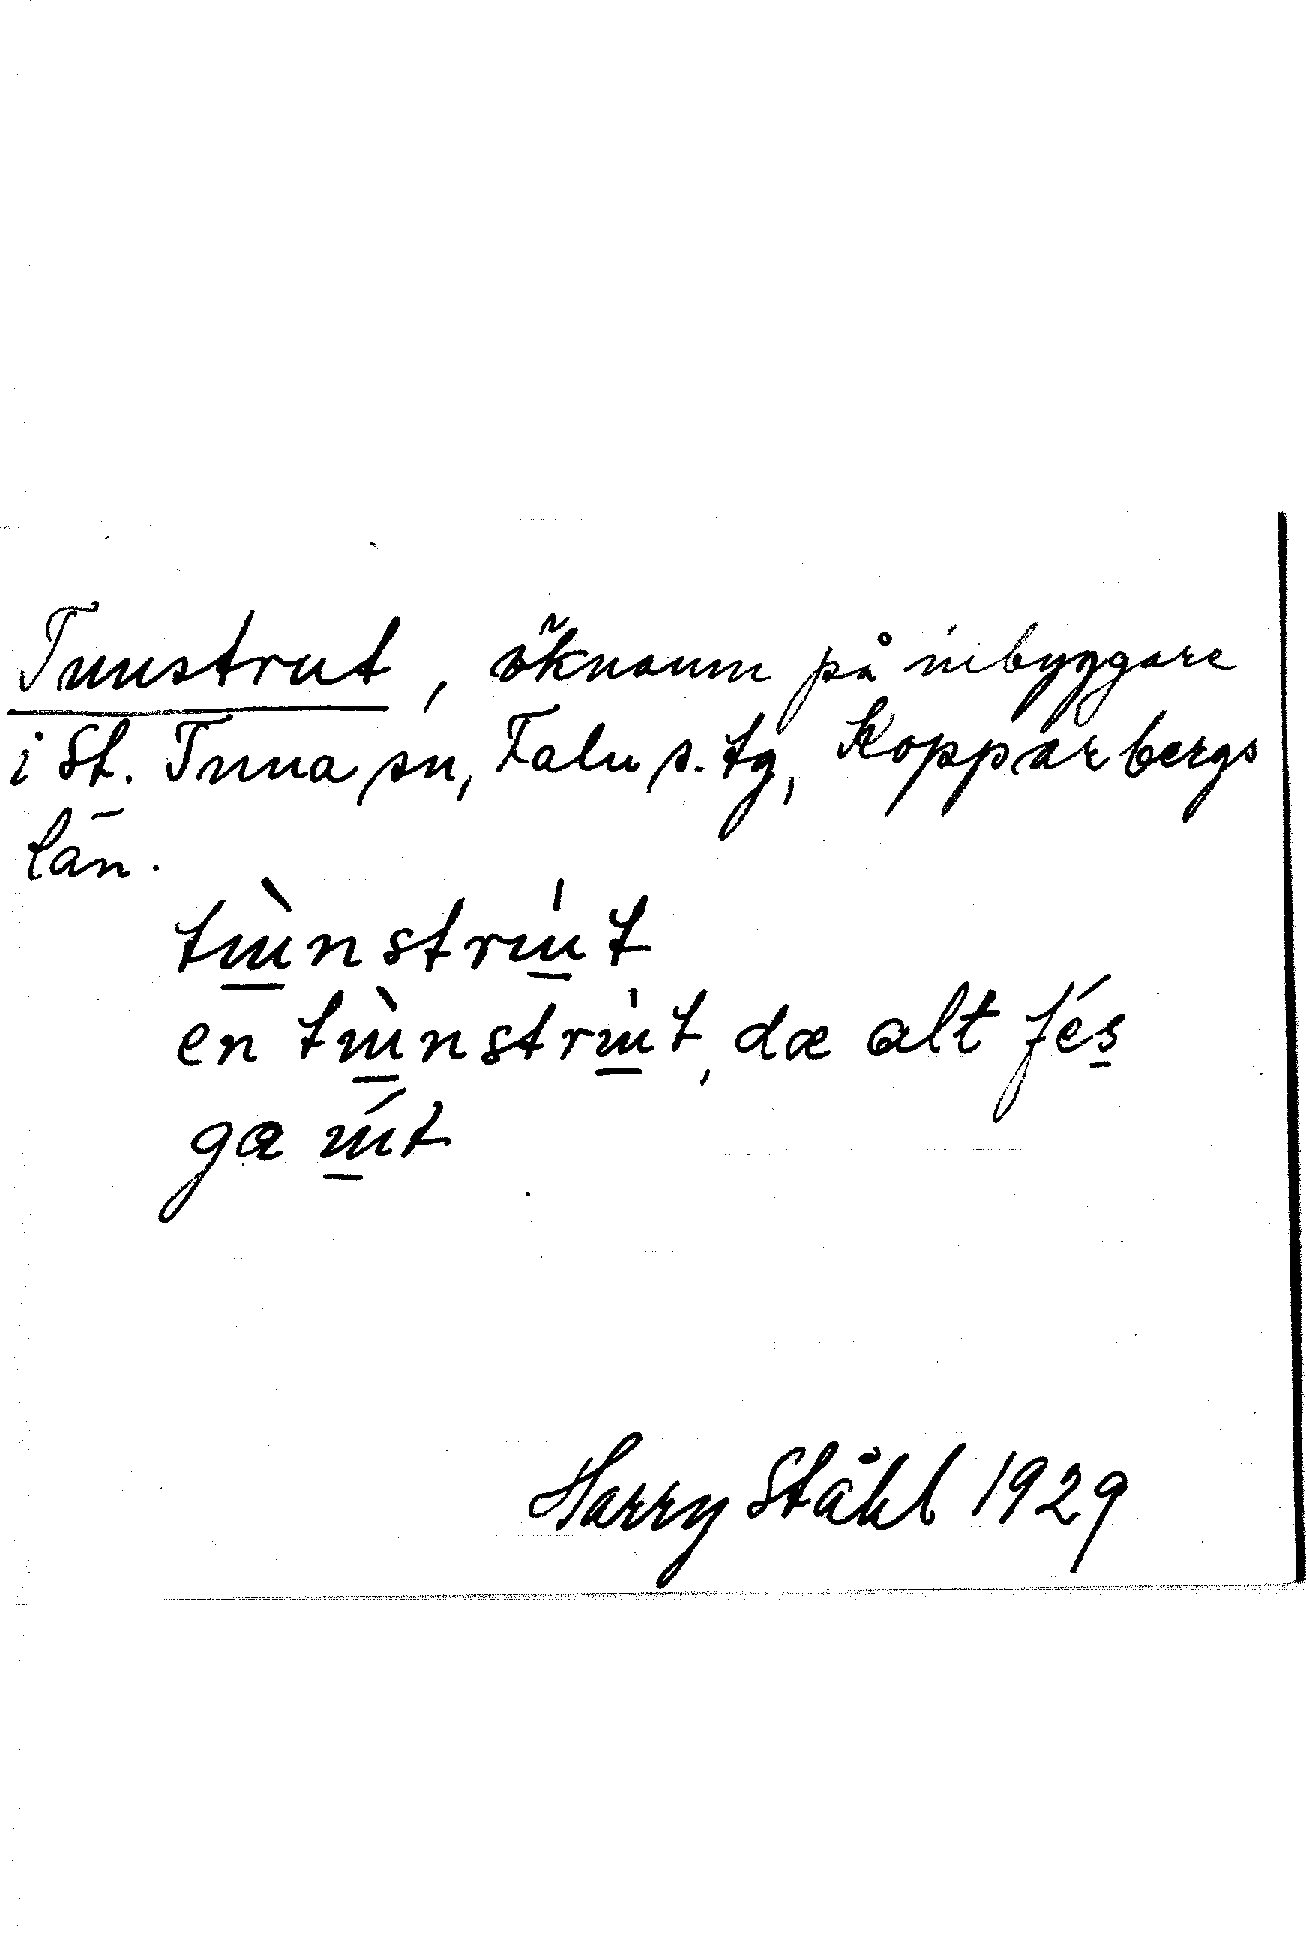 Tunstrut, öknamn på inbyggare
i St. Tuna sn, Falu s. tg, Kopparbergs
län.
tùnstrut
en tùnstrut, dæ alt fés
ga út
Harry Ståhl 1929